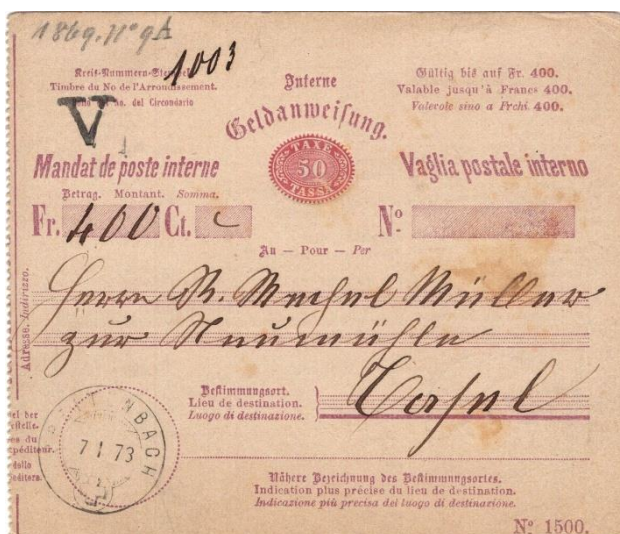 1869. Nº 9A
1003
Kreis-Nummern-Stempel
Timbre du No de l'Arrondissement.
No. del Circondario
V
Interne
Geldanweisung.
TAXE
50
TASSA
Gültig bis auf Fr. 400.
Valable jusqu'à Francs 400.
Valevole sino a Frchi. 400.
Mandat de poste interne
Vaglia postale interno
Betrag. Montant. Somma.
Fr. 400 Ct.
Nº
An — Pour — Per
Adresse. Indirizzo.
Herrn R. Müller
zur Neumühle
Bestimmungsort.
Lieu de destination.
Luogo di destinazione.
Basel
BACH
7 I 73
Nähere Bezeichnung des Bestimmungsortes.
Indication plus précise du lieu de destination.
Indicazione più precisa del luogo di destinazione.
Nº 1500.